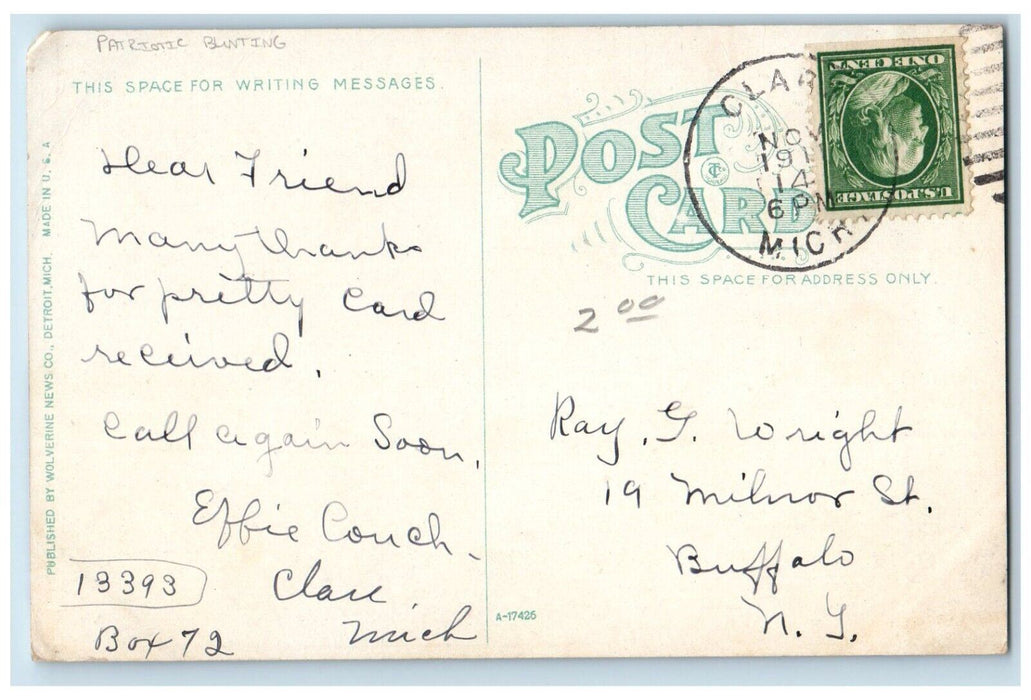 PATRIOTIC BUNTING
THIS SPACE FOR WRITING MESSAGES.
Dear Friend
Many thanks
for pretty card
received.
Call again Soon.
Effie Couch-
Clare
Mich
13393
Box 72
PUBLISHED BY WOLVERINE NEWS CO., DETROIT, MICH. MADE IN U. S. A
POST CARD
THIS SPACE FOR ADDRESS ONLY.
NOV
191
14
6 PM
MICH
ONE CENT
U.S. POSTAGE
2 00
Ray. G. Wright
19 Milnor St.
Buffalo
N. Y.
A-17426